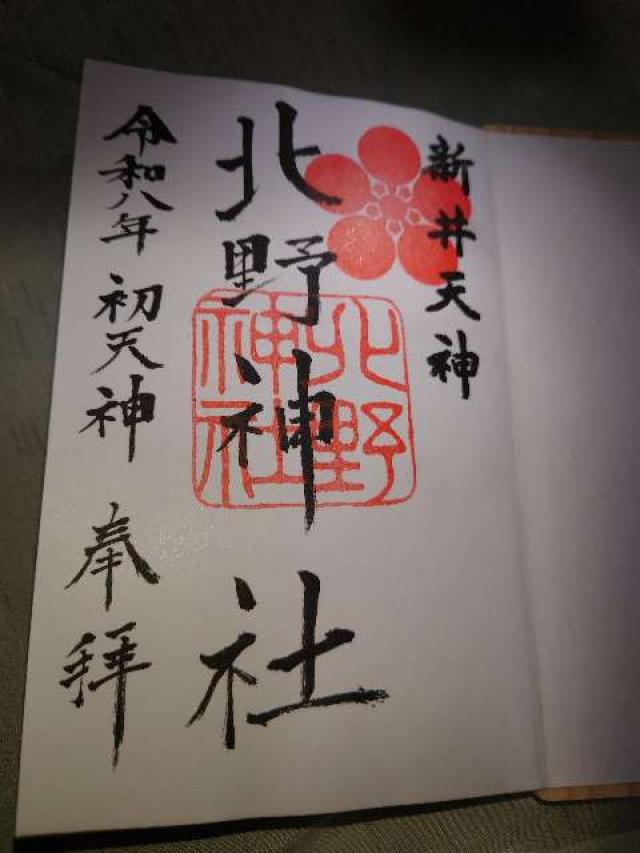 新井天神
北野神社
北野神社
令和八年 初天神 奉拝